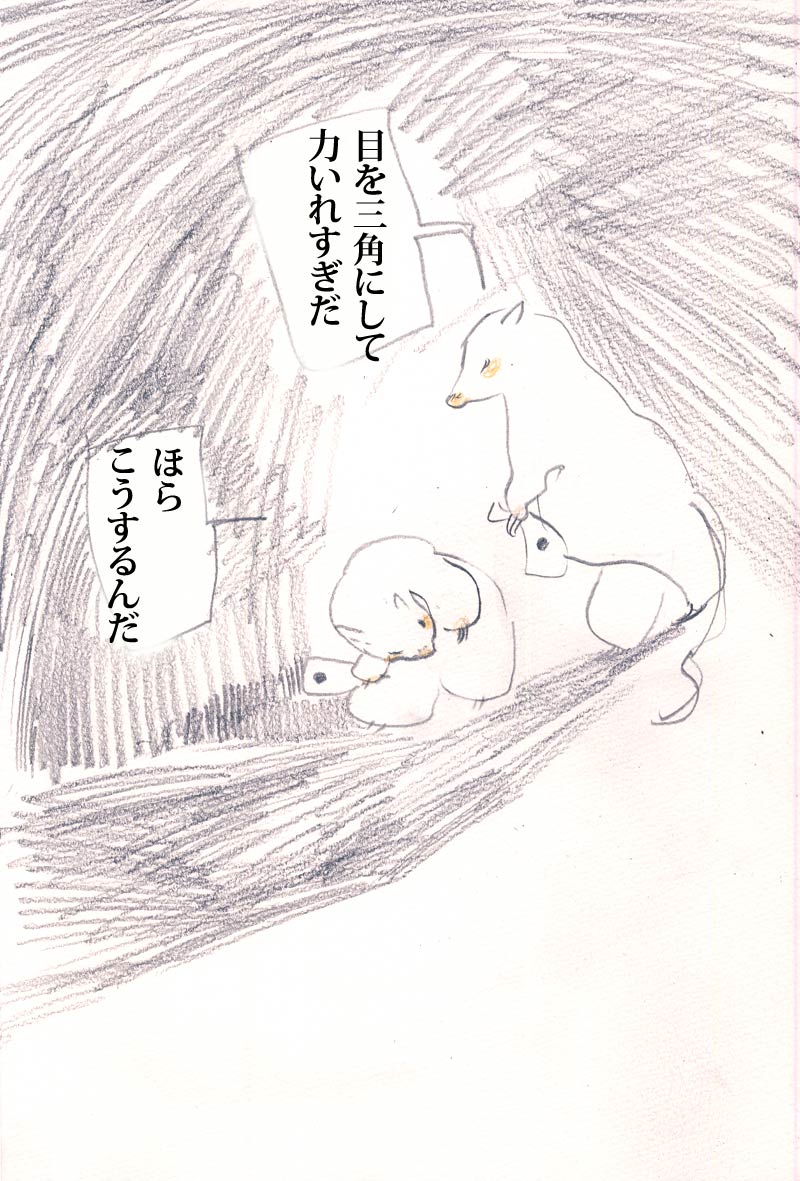 目を三角にして
力いれすぎだ
ほら
こうするんだ